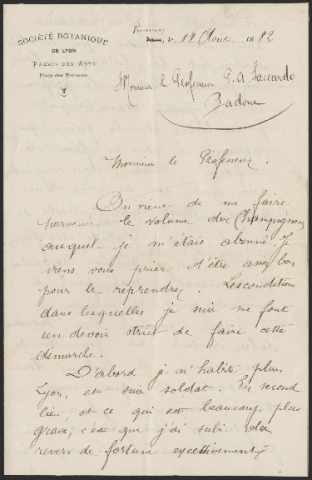 SOCIÉTÉ BOTANIQUE
DE LYON
PALAIS DES ARTS
Place des Terreaux
le 11 1882
Monsieur le Professeur P. A. Saccardo
Padoue
Monsieur le Professeur.
On vient de me faire
parvenir le volume des Champignons
auquel je m'étais abonné. Je
viens vous prier d'être assez bon
pour le reprendre. Les conditions
dans lesquelles je suis me font
un devoir strict de faire cette
démarche.
D'abord je n'habite plus
Lyon, et suis soldat. En second
lieu et ce qui est beaucoup plus
grave, c'est que j'ai subi des
revers de fortune excessivement